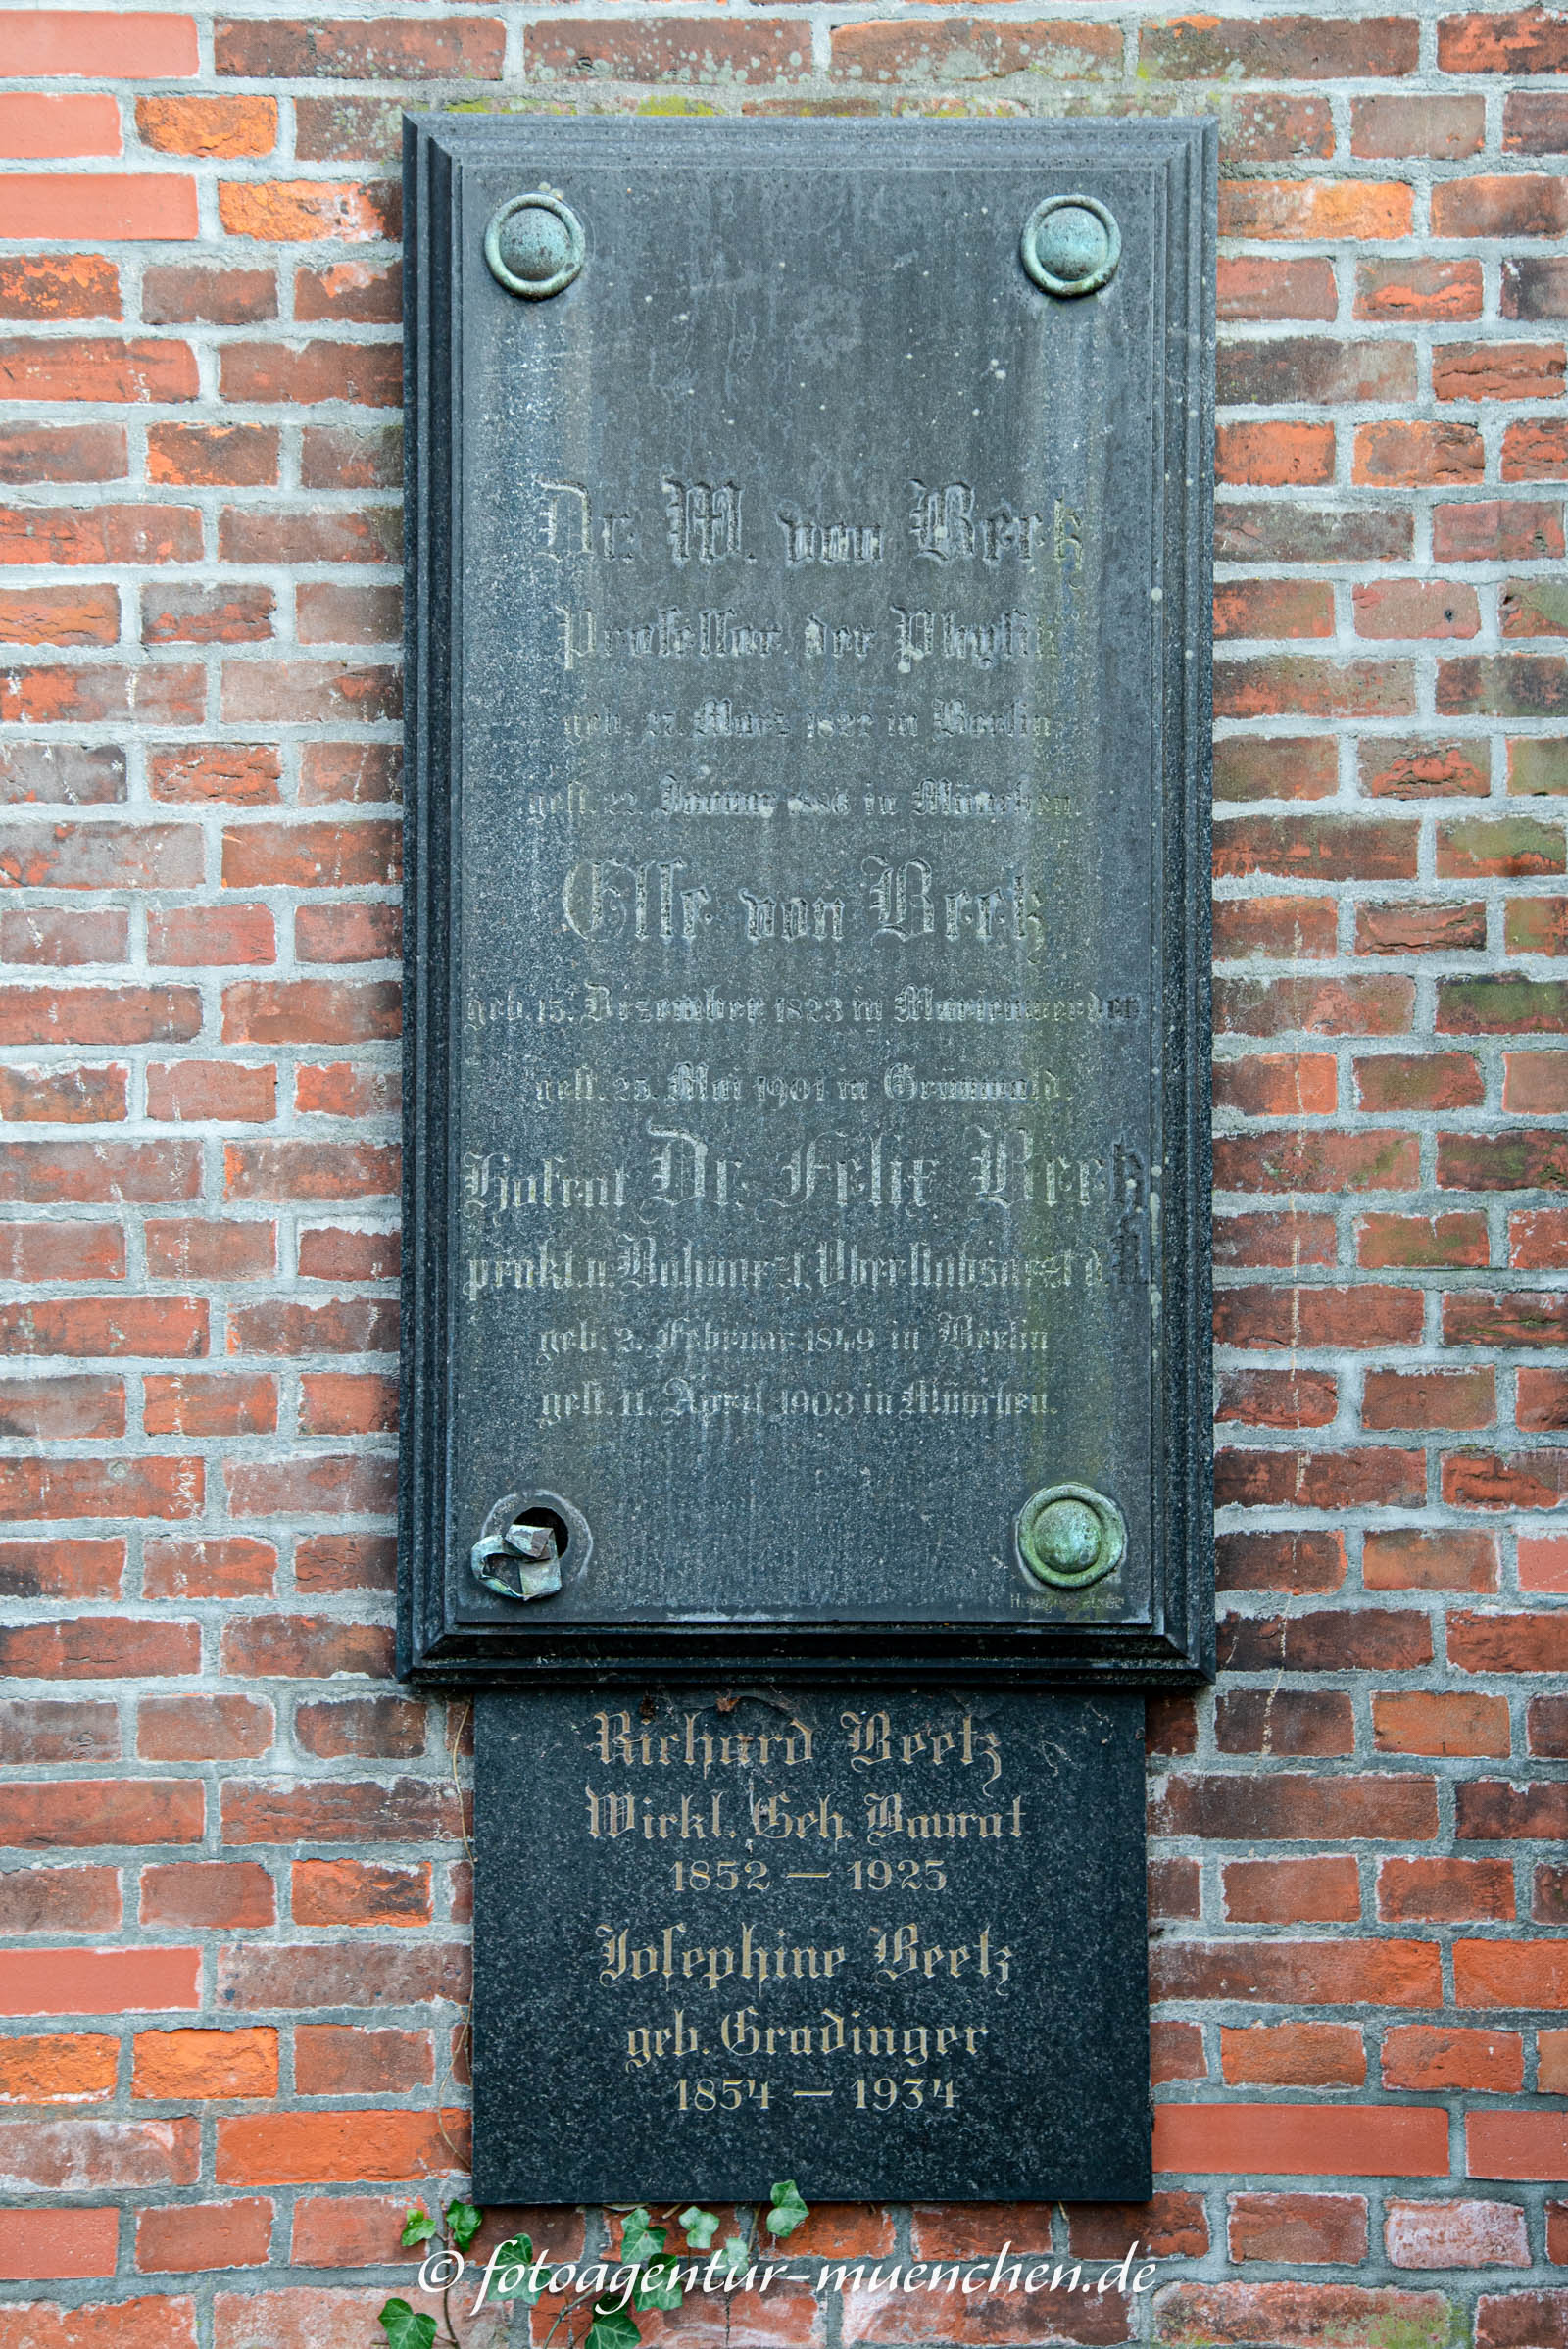 Dr. W. von Beetz
Professor der Physik
geb. 27. März 1822 in Berlin,
gest. 22. Januar 1886 in München.
Else von Beetz
geb. 15. Dezember 1823 in Marienwerder
gest. 25. Mai 1901 in Grünwald.
Hofrat Dr. Felix Beetz
prakt. u. Bahnarzt, Oberstabsarzt d.
geb. 3. Februar 1849 in Berlin
gest. 11. April 1903 in München.
Richard Beetz
Wirkl. Geh. Baurat
1852 — 1925
Josephine Beetz
geb. Gradinger
1854 — 1934
© fotoagentur-muenchen.de